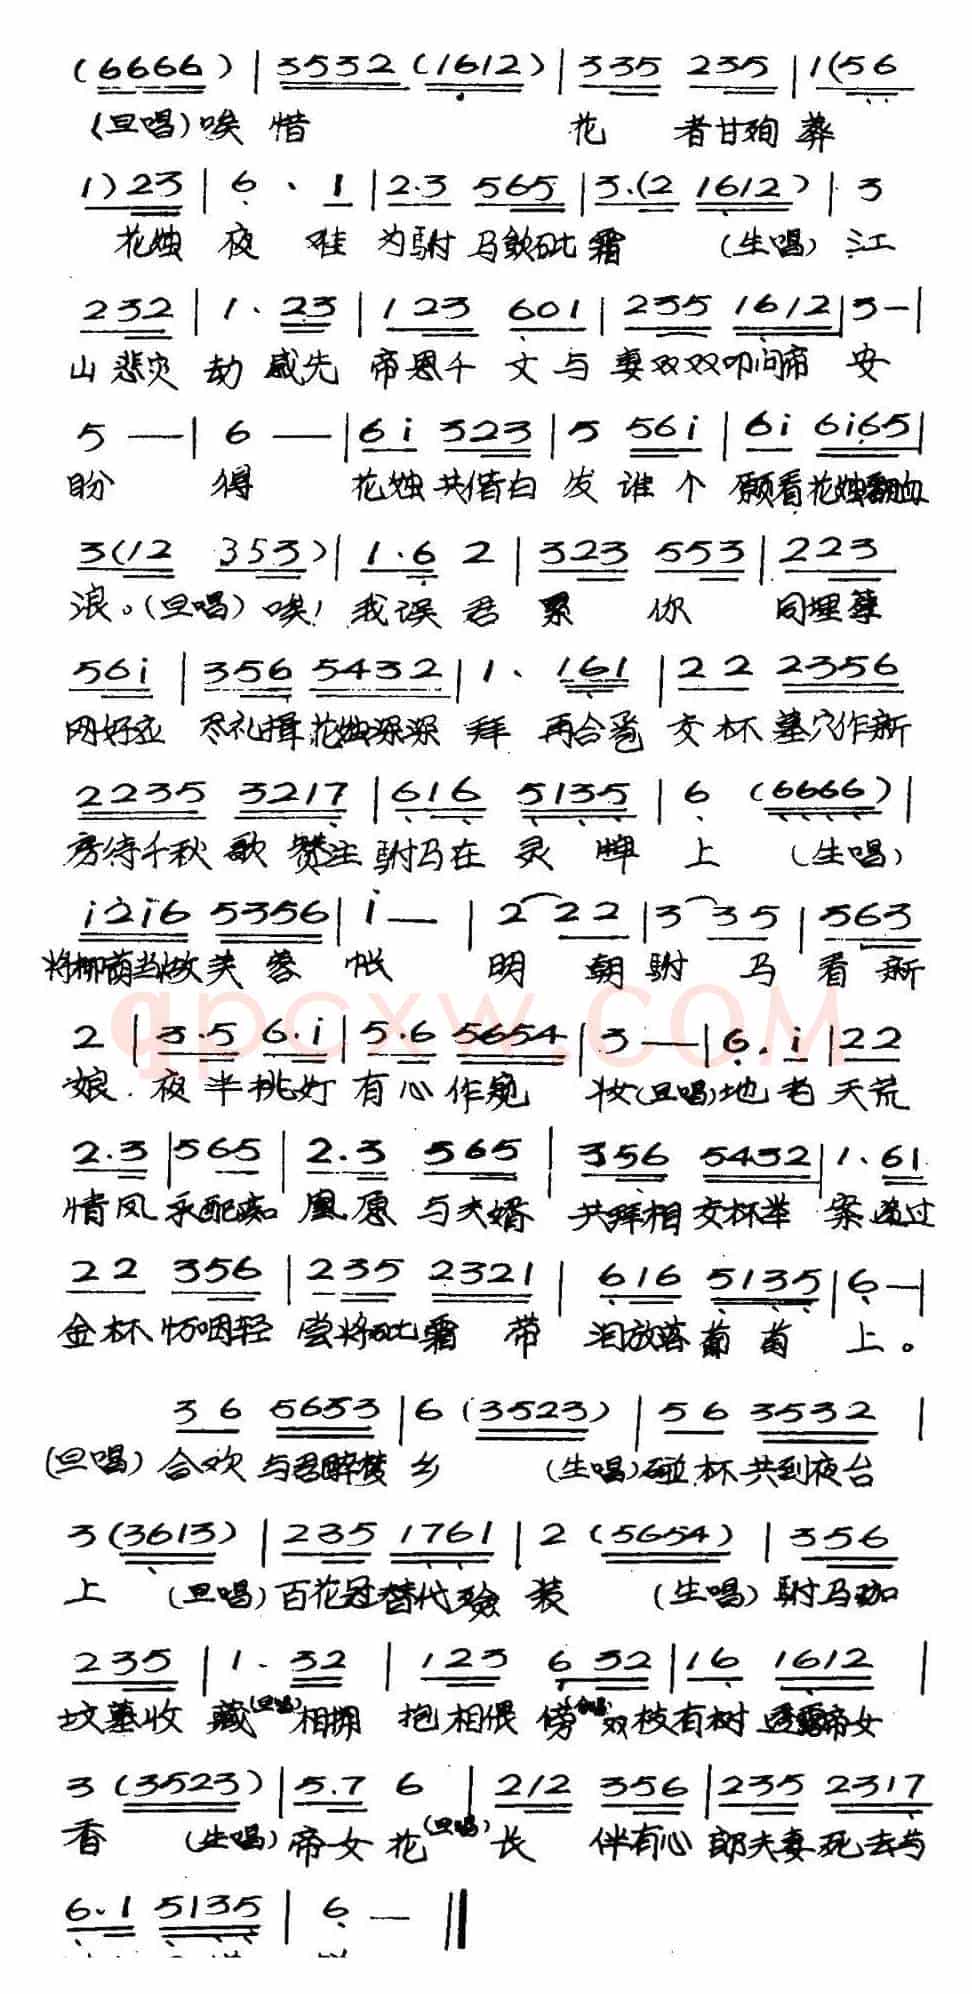 (6666) | 3532 (1612) | 335 235 | 1(56
(旦唱)唉惜 花 者甘殉葬
1) 23 | 6 、 1 | 2.3 565 | 3.(2 1612) | 3
花烛 夜 难 为驸 马饮砒霜 (生唱) 江
232 | 1 . 23 | 123 601 | 235 1612 | 3 — |
山悲灾 劫 感先 帝恩千 丈 与 妻双双叩问帝 安
5 — | 6 — | 6i 323 | 5 56i | 6i 6i65 |
盼 得 花烛共偕白 发 谁 个 愿看花烛翻血
3(12 353) | 1.6 2 | 323 553 | 223
浪。(旦唱) 唉! 我误 君 累 你 同埋孽
56i | 356 5432 | 1、 161 | 22 2356
网好应 尽礼揖花烛深深 拜 再合卺 交 杯 墓穴作新
2235 3217 | 616 5135 | 6 (6666) |
房待千秋 歌 赞注驸马在 灵 牌 上 (生唱)
i2i6 5356 | i — | 2 22 | 3 35 | 563
将柳荫当做芙 蓉 帐 明 朝 驸 马 看 新
2 | 3.5 6.i | 5.6 5654 | 3 — | 6.i | 22
娘. 夜 半挑灯 有心作窥 妆(旦唱)地 老 天荒
2.3 | 565 | 2.3 565 | 356 5432 | 1.61
情凤 永配痴 凰愿 与夫婿 共拜相 交杯举 案 递过
22 356 | 235 2321 | 616 5135 | 6 — |
金杯 怀咽轻 尝将砒霜 带 泪放落葡 萄 上。
36 5653 | 6 (3523) | 56 3532 |
(旦唱) 合欢 与君醉梦 乡 (生唱)碰杯共到夜台
3 (3613) | 235 1761 | 2 (5654) | 356
上 (旦唱) 百花冠替代殓 装 (生唱) 驸马珈
235 | 1.32 | 123 6 32 | 16 1612 |
坟墓收 藏(旦唱)相拥 抱相偎 傍 双枝有树透露帝女
3 (3523) | 5.7 6 | 212 356 | 235 2317
香 (生唱) 帝女花(旦唱)长 伴有心 郎夫妻死去与
6.1 5135 | 6 — ‖
gpcxw.COM